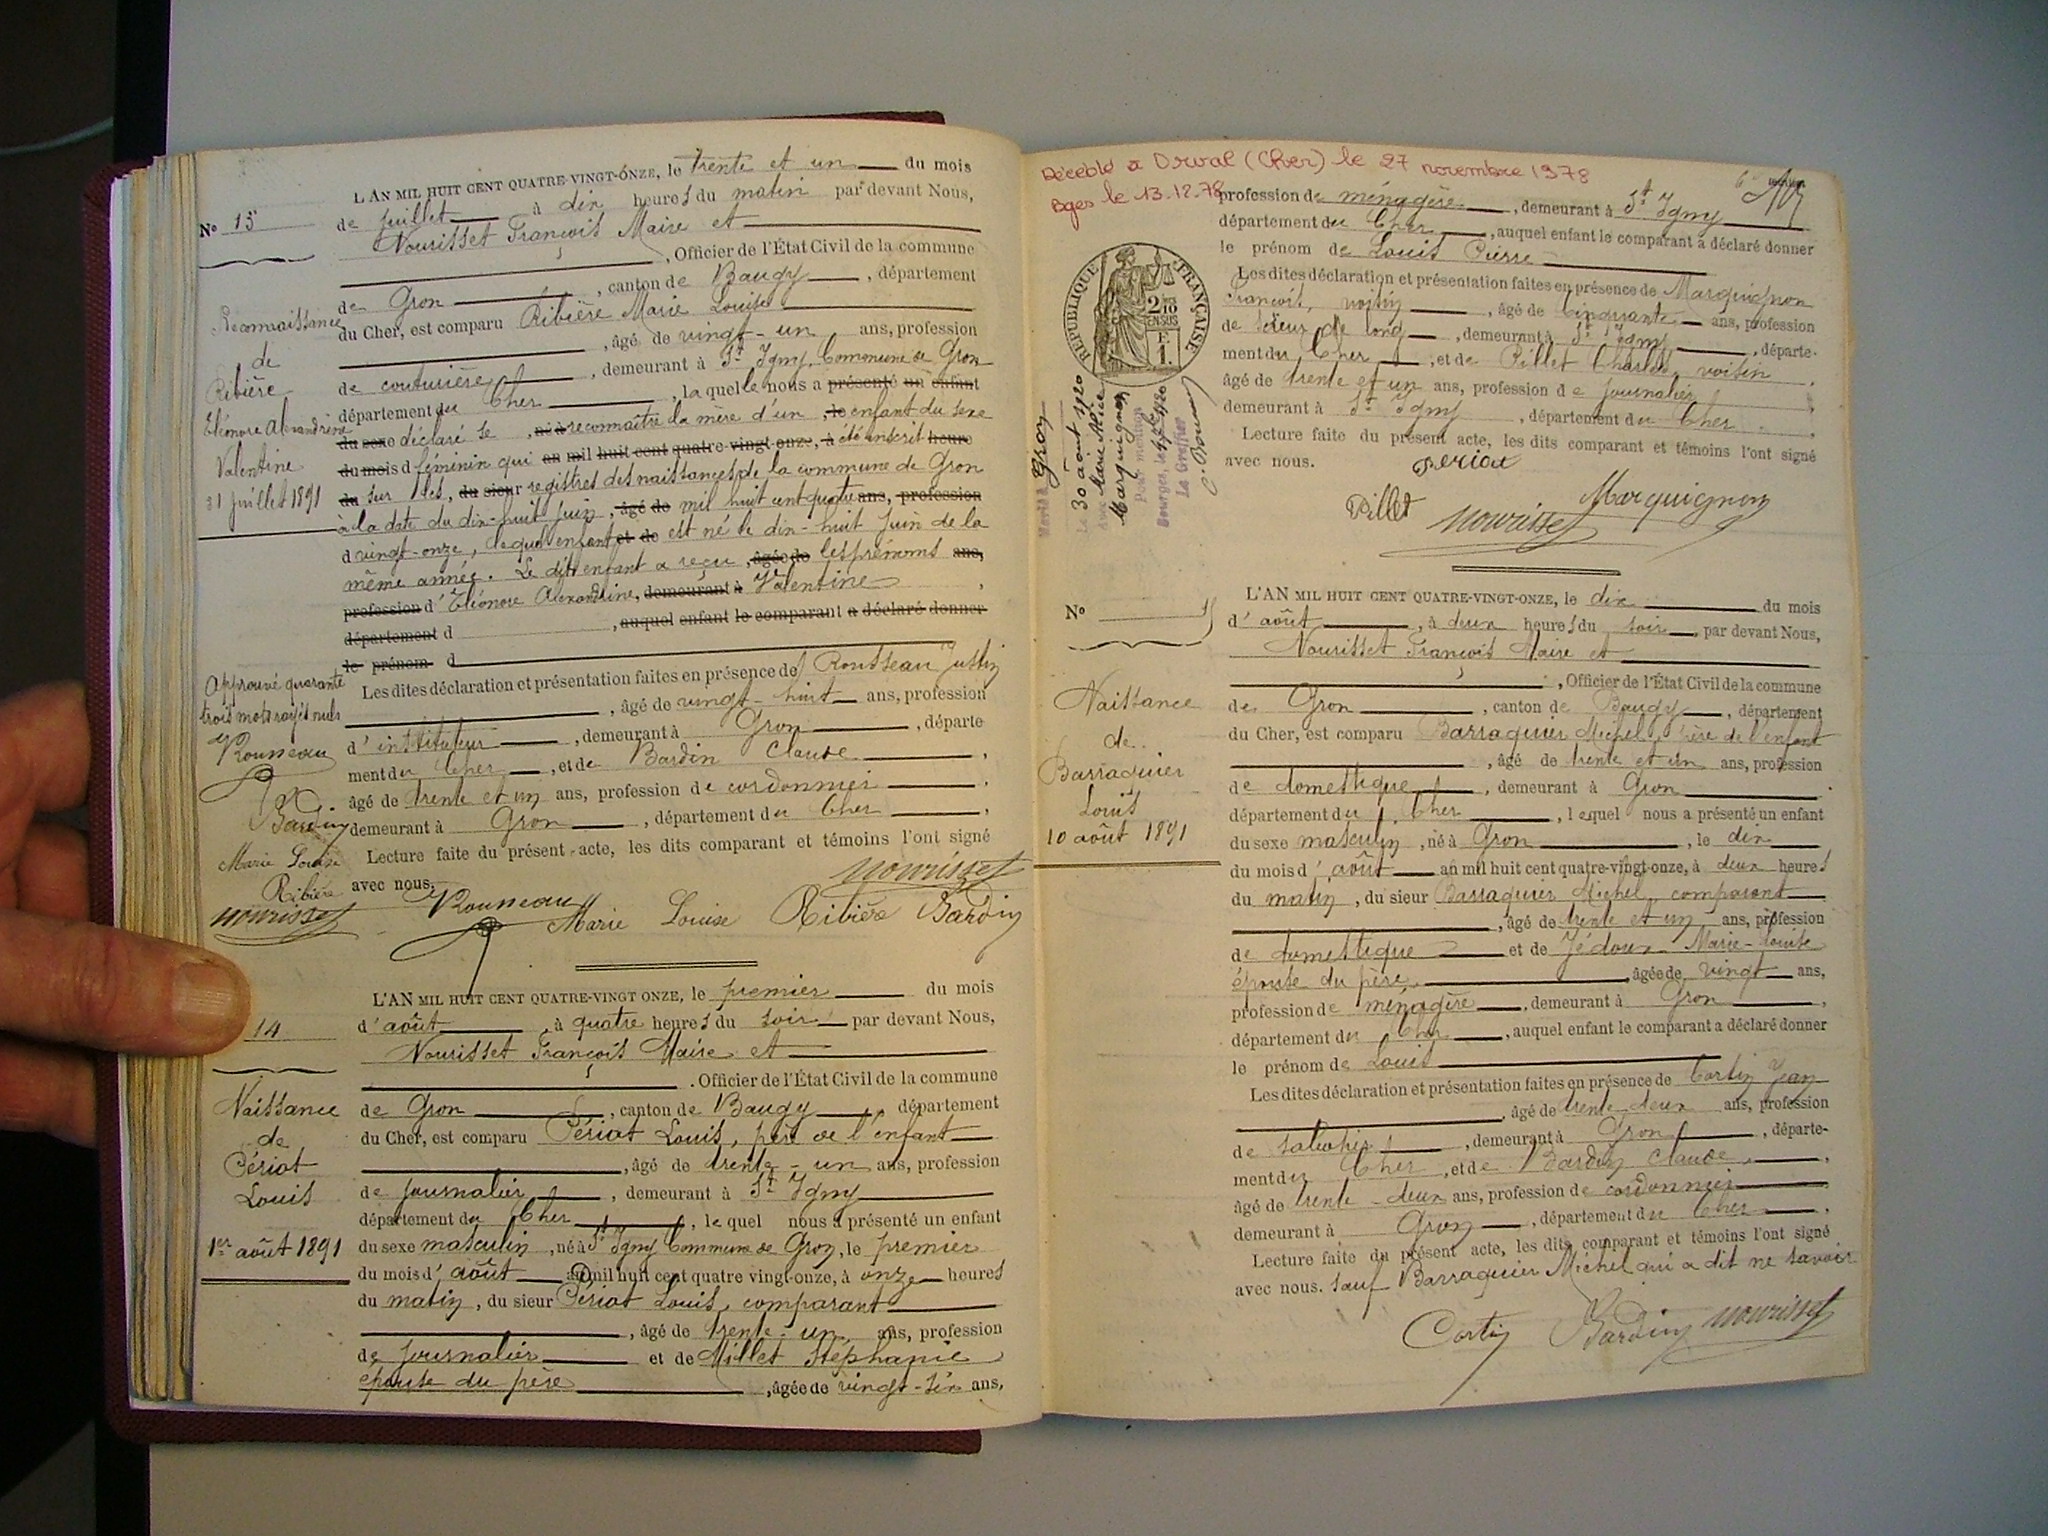 L'AN MIL HUIT CENT QUATRE-VINGT-ONZE, le trente et un du mois
N° 13
de juillet à dix heures du matin par devant Nous,
Nourisset François Maire et
, Officier de l'État Civil de la commune
de Gron , canton de Baugy , département
du Cher, est comparu Ribière Marie Louise
, âgé de vingt-un ans, profession
de couturière , demeurant à St Igny, Commune de Gron
département du Cher , la quelle nous a présenté un enfant
du sexe déclaré se , né à reconnaître la mère d'un , le enfant du sexe
du mois d féminin qui an mil huit cent quatre-vingt-onze, à été inscrit heure
du sur les , du sieur registres des naissances de la commune de Gron
à la date du dix-huit juin , âgé de mil huit cent quatre ans, profession
d vingt-onze, lequel enfant et de est né le dix-huit juin de la
même année. Le dit enfant a reçu , âgée de les prénoms ans,
profession d'Eléonore Alexandrine, demeurant à Valentine ,
département d , auquel enfant le comparant a déclaré donner
le prénom d
Les dites déclaration et présentation faites en présence de Rousseau Justin
, âgé de vingt-huit ans, profession
d'instituteur , demeurant à Gron , départe-
ment du Cher , et de Bardin Claude ,
âgé de trente et un ans, profession de cordonnier ,
demeurant à Gron , département du Cher ,
Lecture faite du présent acte, les dits comparant et témoins l'ont signé
avec nous.
Nourisset
Rousseau Marie Louise Ribière Bardin
Reconnaissance
de
Ribière
Eléonore Alexandrine
Valentine
31 juillet 1891
Approuvé quarante
trois mots rayés nuls
Rousseau
Bardin
Marie Louise
Ribière
Nourisset
L'AN MIL HUIT CENT QUATRE-VINGT ONZE, le premier du mois
14
d'août à quatre heures du soir par devant Nous,
Nourisset François Maire et
. Officier de l'État Civil de la commune
de Gron , canton de Baugy , département
du Cher, est comparu Périot Louis, père de l'enfant
, âgé de trente-un ans, profession
de journalier , demeurant à St Igny
département du Cher , le quel nous a présenté un enfant
du sexe masculin , né à St Igny Commune de Gron, le premier
du mois d'août an mil huit cent quatre vingt-onze, à onze heures
du matin , du sieur Périot Louis, comparant
, âgé de trente-un ans, profession
de journalier et de Millet Stéphanie
épouse du père , âgée de vingt-six ans,
Naissance
de
Périot
Louis
1er août 1891
Décédé à Orval (Cher) le 27 novembre 1978
Bges le 13.12.78
profession de ménagère , demeurant à St Igny
département du Cher , auquel enfant le comparant a déclaré donner
le prénom de Louis Pierre
Les dites déclaration et présentation faites en présence de Marquignon
François, voisin , âgé de cinquante ans, profession
de scieur de long , demeurant à St Igny , départe-
ment du Cher , et de Pillet Charles, voisin ,
âgé de trente et un ans, profession de journalier ,
demeurant à St Igny , département du Cher .
Lecture faite du présent acte, les dits comparant et témoins l'ont signé
avec nous.
Periot
Pillet Marquignon
Nourisset
RÉPUBLIQUE FRANÇAISE
2/10 EN SUS
1 F.
Marié à Gron
Le 30 août 1920
avec Marie
Marquignon
Pour mention
Bourges, le 1920
Le Greffier
L'AN MIL HUIT CENT QUATRE-VINGT-ONZE, le dix du mois
N° 15
d'août , à deux heures du soir , par devant Nous,
Nourisset François Maire et
, Officier de l'État Civil de la commune
de Gron , canton de Baugy , département
du Cher, est comparu Barraquier Michel, père de l'enfant
, âgé de trente et un ans, profession
de domestique , demeurant à Gron
département du Cher , lequel nous a présenté un enfant
du sexe masculin , né à Gron , le dix
du mois d'août an mil huit cent quatre-vingt-onze, à deux heures
du matin , du sieur Barraquier Michel, comparant
, âgé de trente et un ans, profession
de domestique et de Jédoux Marie-Louise
épouse du père , âgée de vingt ans,
profession de ménagère , demeurant à Gron ,
département du Cher , auquel enfant le comparant a déclaré donner
le prénom de Louis
Les dites déclaration et présentation faites en présence de Cortin Jean
, âgé de trente-deux ans, profession
de , demeurant à Gron , départe-
ment du Cher , et de Bardin Claude ,
âgé de trente-deux ans, profession de cordonnier ,
demeurant à Gron , département du Cher ,
Lecture faite du présent acte, les dits comparant et témoins l'ont signé
avec nous. sauf Barraquier Michel qui a dit ne savoir
Cortin Bardin Nourisset
Naissance
de
Barraquier
Louis
10 août 1891